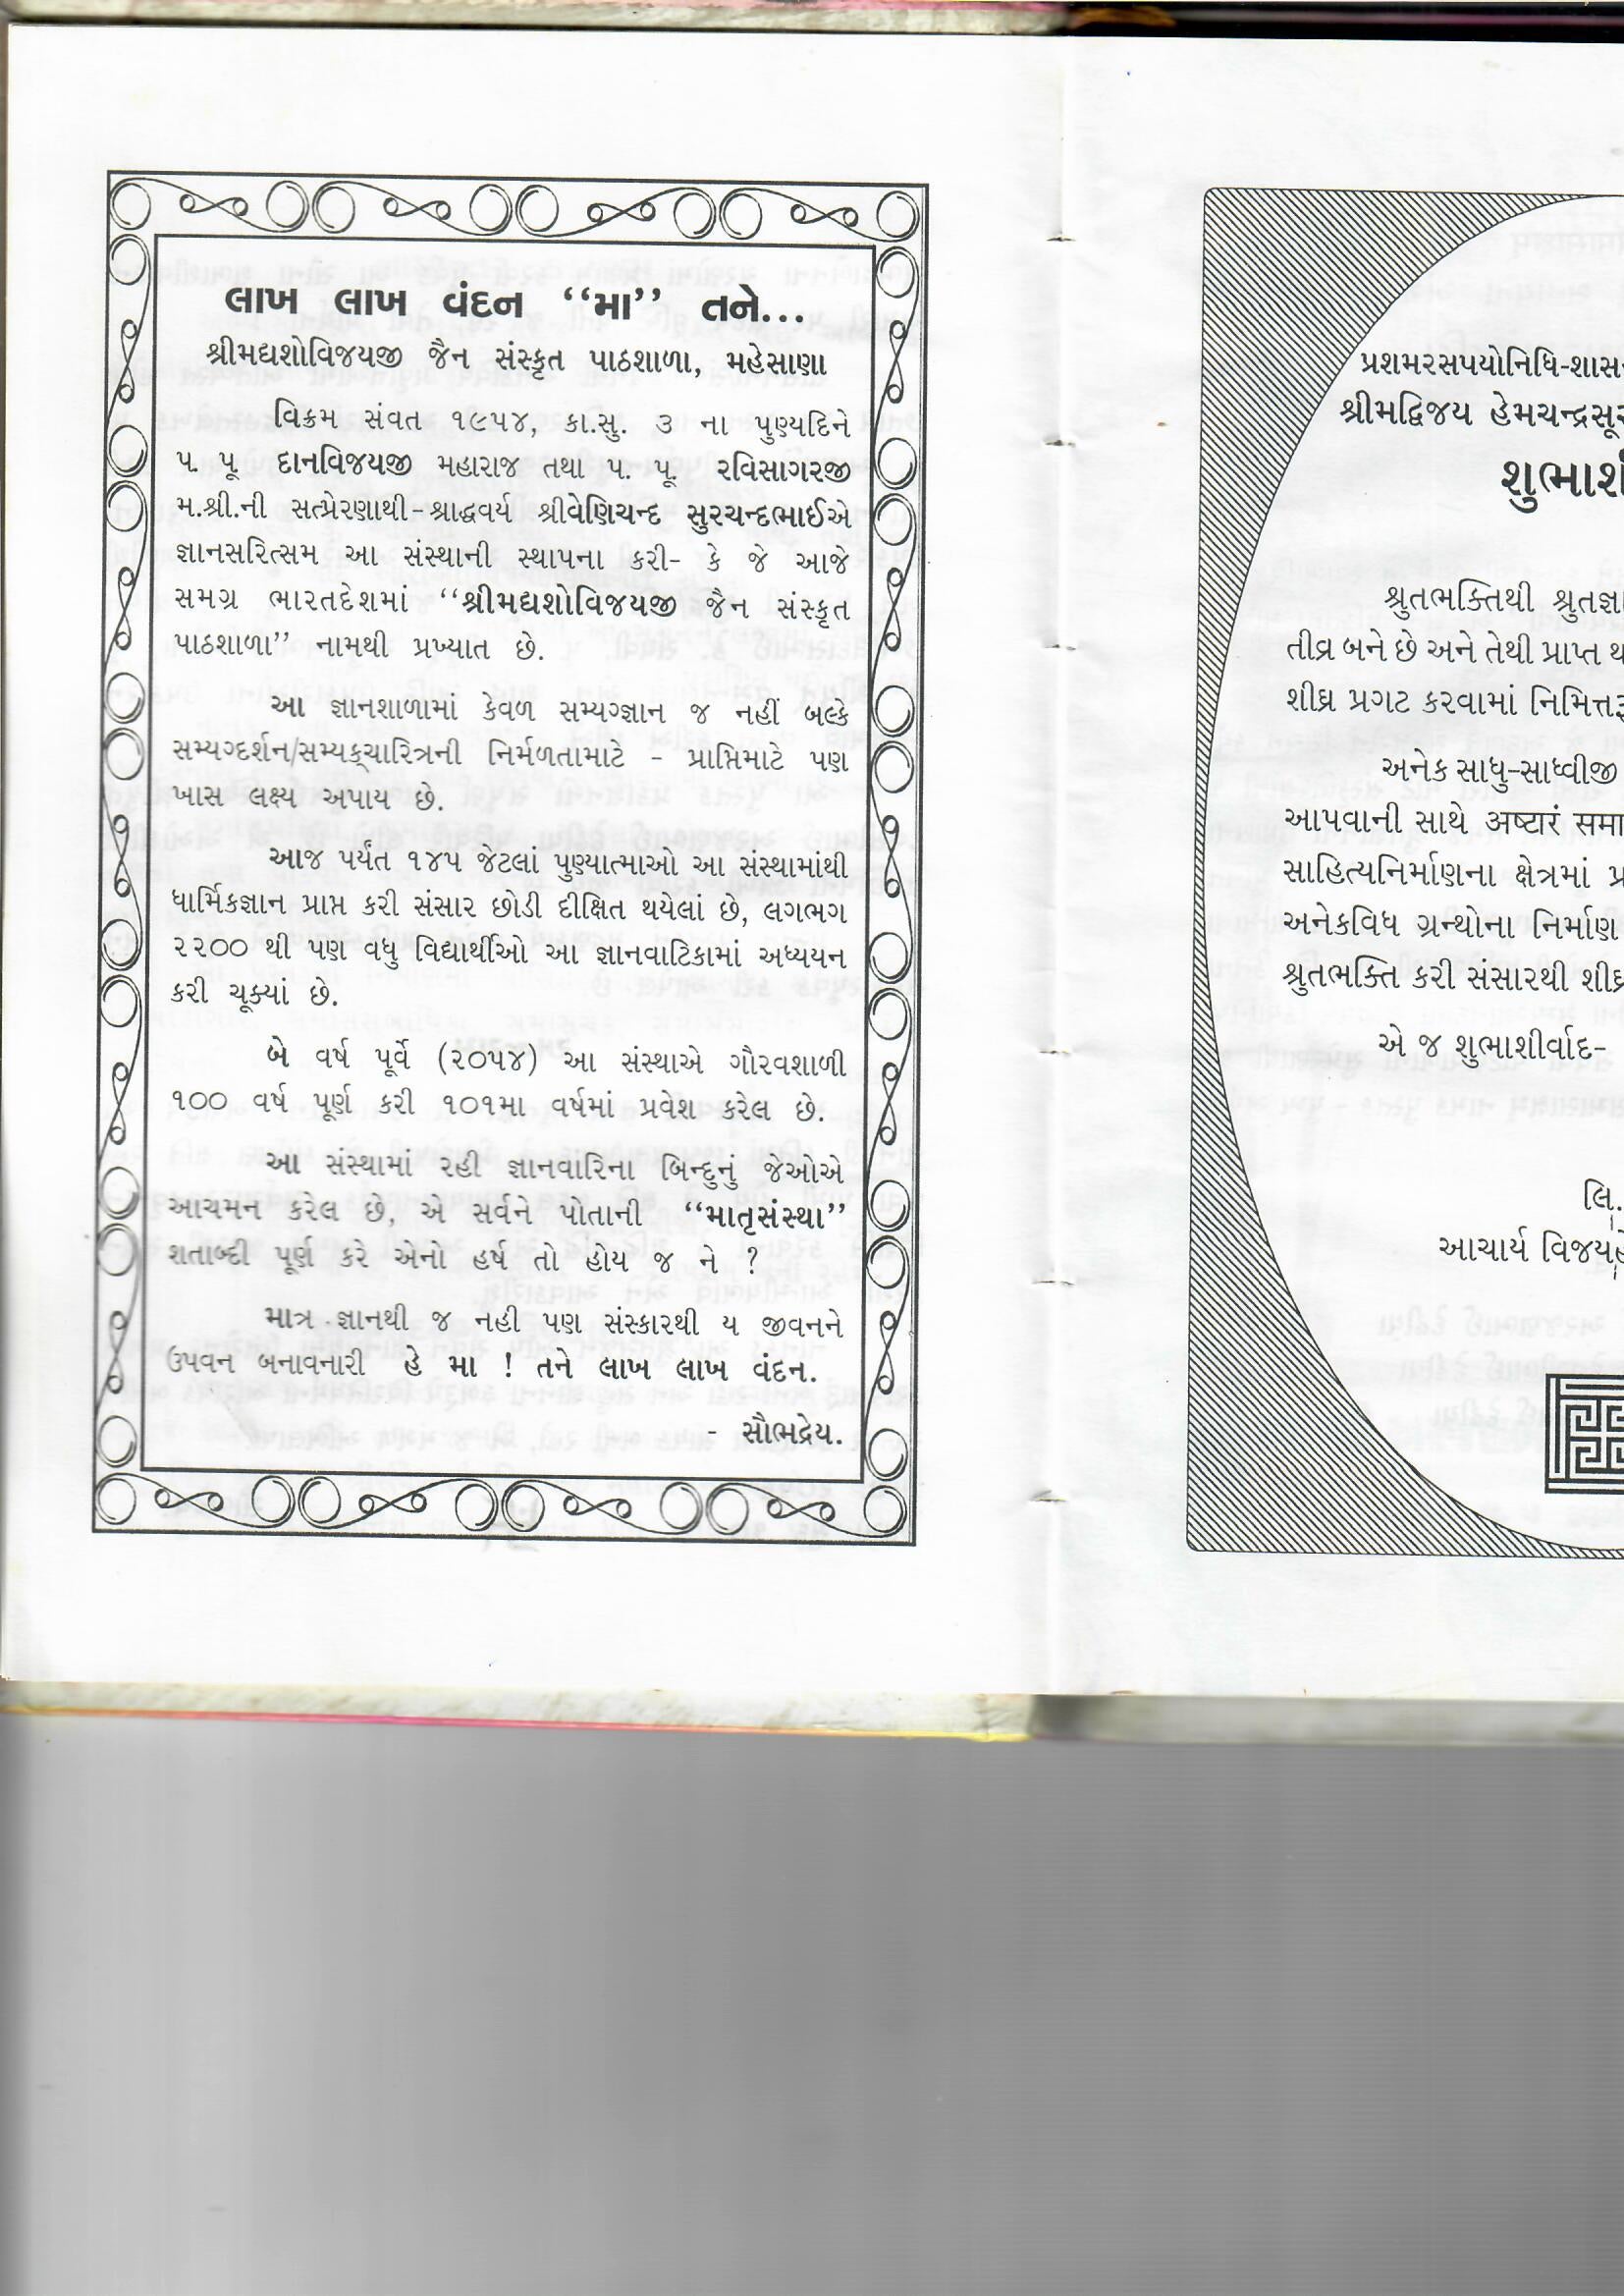 લાખ લાખ વંદન ‘‘મા’’ તને...
શ્રીમદ્યશોવિજયજી જૈન સંસ્કૃત પાઠશાળા, મહેસાણા
વિક્રમ સંવત ૧૯૫૪, કા.સુ. ૩ ના પુણ્યદિને
પ. પૂ. દાનવિજયજી મહારાજ તથા પ. પૂ. રવિસાગરજી
મ.શ્રી.ની સત્પ્રેરણાથી-શ્રાદ્ધવર્ય શ્રીવેણિચન્દ સુરચન્દભાઈએ
જ્ઞાનસરિત્સમ આ સંસ્થાની સ્થાપના કરી- કે જે આજે
સમગ્ર ભારતદેશમાં ‘‘શ્રીમદ્યશોવિજયજી જૈન સંસ્કૃત
પાઠશાળા’’ નામથી પ્રખ્યાત છે.
આ જ્ઞાનશાળામાં કેવળ સમ્યગ્જ્ઞાન જ નહીં બલ્કે
સમ્યગ્દર્શન/સમ્યક્ચારિત્રની નિર્મળતામાટે - પ્રાપ્તિમાટે પણ
ખાસ લક્ષ્ય અપાય છે.
આજ પર્યંત ૧૪૫ જેટલાં પુણ્યાત્માઓ આ સંસ્થામાંથી
ધાર્મિકજ્ઞાન પ્રાપ્ત કરી સંસાર છોડી દીક્ષિત થયેલાં છે, લગભગ
૨૨૦૦ થી પણ વધુ વિદ્યાર્થીઓ આ જ્ઞાનવાટિકામાં અધ્યયન
કરી ચૂક્યાં છે.
બે વર્ષ પૂર્વે (૨૦૫૪) આ સંસ્થાએ ગૌરવશાળી
૧૦૦ વર્ષ પૂર્ણ કરી ૧૦૧મા વર્ષમાં પ્રવેશ કરેલ છે.
આ સંસ્થામાં રહી જ્ઞાનવારિના બિન્દુનું જેઓએ
આચમન કરેલ છે, એ સર્વને પોતાની ‘‘માતૃસંસ્થા’’
શતાબ્દી પૂર્ણ કરે એનો હર્ષ તો હોય જ ને ?
માત્ર જ્ઞાનથી જ નહી પણ સંસ્કારથી ય જીવનને
ઉપવન બનાવનારી હે મા ! તને લાખ લાખ વંદન.
- સૌભદ્રેય.
પ્રશમરસપયોનિધિ-
શ્રીમદ્વિજય
શ્રુતભક્તિથી
તીવ્ર બને છે અને તેથી પ્રાપ્ત
શીઘ્ર પ્રગટ કરવામાં
અનેક સાધુ-સાધ્વીજી
આપવાની સાથે અષ્ટારં
સાહિત્યનિર્માણના ક્ષેત્રમાં
અનેકવિધ ગ્રન્થોના નિર્માણ
શ્રુતભક્તિ કરી સંસારથી
એ જ શુભાશીર્વાદ-
લિ.
આચાર્ય